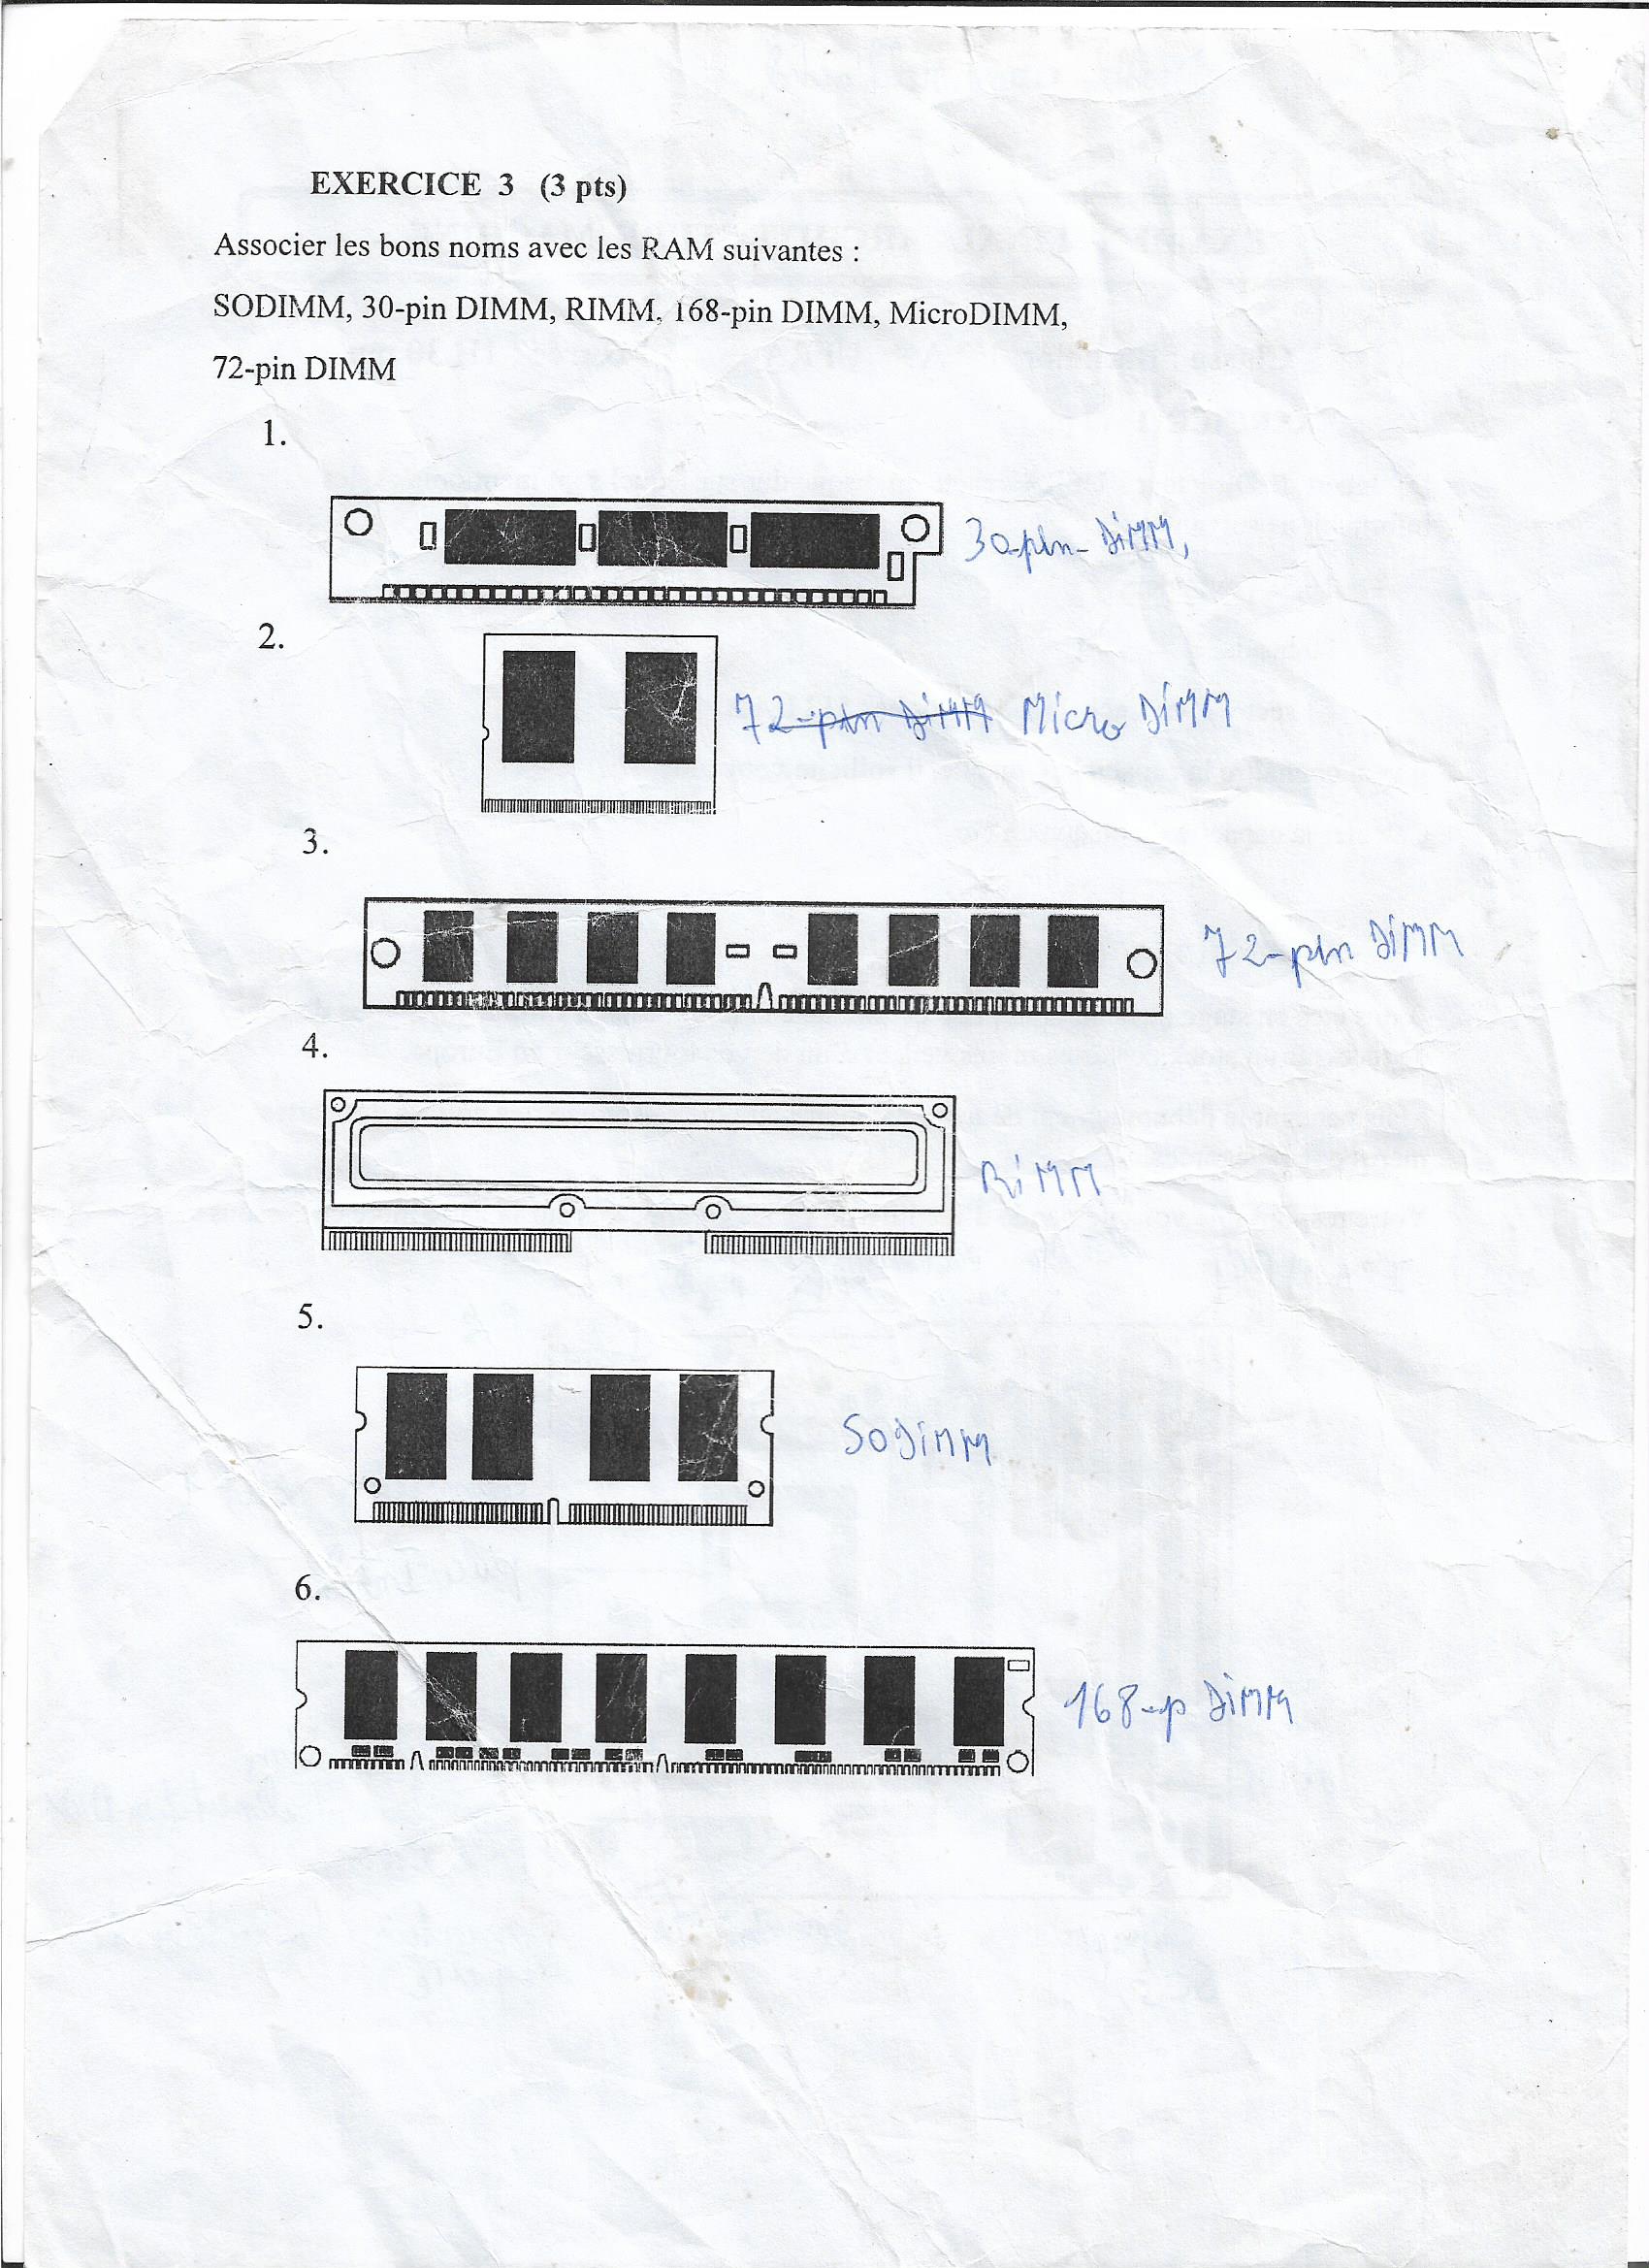 EXERCICE 3 (3 pts)
Associer les bons noms avec les RAM suivantes :
SODIMM, 30-pin DIMM, RIMM, 168-pin DIMM, MicroDIMM,
72-pin DIMM
1.
30-pin- DiMM,
2.
72-pin DiMM Micro DiMM
3.
72-pin DiMM
4.
RiMM
5.
SODiMM
6.
168-p DiMM